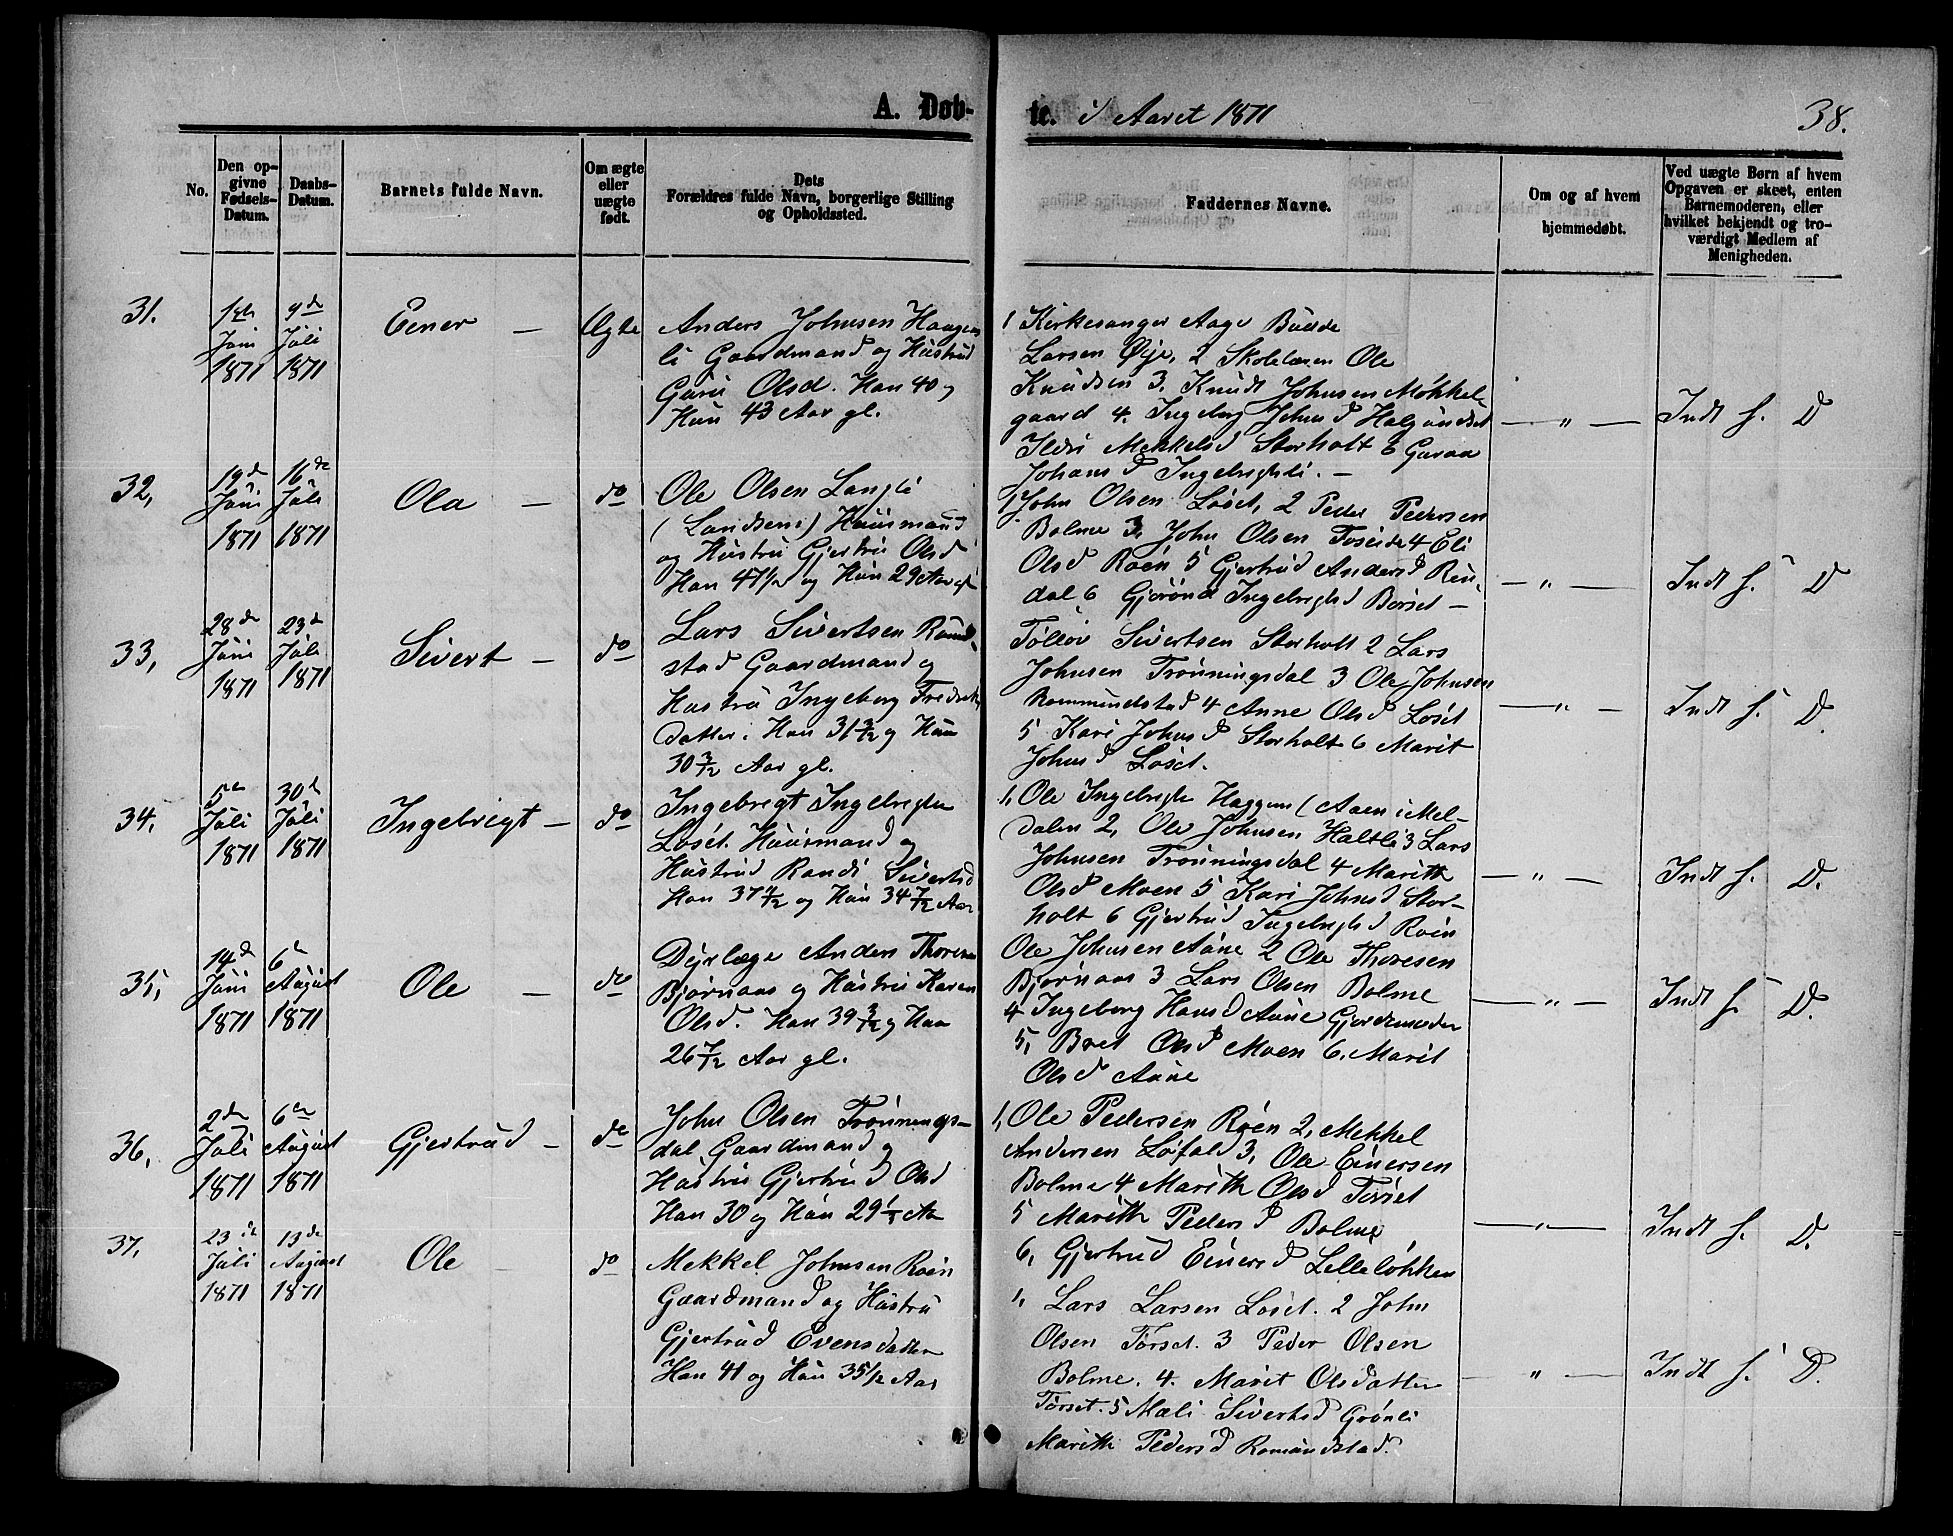 A. Døb-
te. i Aaret 1871
38.
No.
Den op-
givne
Fødsels-
Datum.
Daabs-
Datum.
Barnets fulde Navn.
Om ægte
eller
uægte
født.
Dets
Forældres fulde Navn, borgerlige Stilling
og Opholdssted.
Faddernes Navne.
Om og af hvem
hjemmedøbt.
Ved uægte Børn af hvem
Opgaven er skeet, enten
Barnemoderen, eller
hvilket bekjendt og tro-
værdigt Medlem af
Menigheden.
31.
1ste
Juni
1871
9de
Juli
1871
Eener —
Ægte
Anders Johnsen Haagens
li Gaardmand og Hustrud
Guru Olsd. Han 40 og
Hun 43 Aar gl.
1 Kirkesanger Aage Budde
Larsen Øye, 2 Skolelæren Ole
Knudsen 3. Knudt Johnsen Møkkel-
gaard 4. Ingeborg Johnsd Halgundset
Ildri Mekkelsd Storholt 6 Guraa
Johansd Ingebrigtsli. —
— " —
Indt S. D
32,
19de
Juni
1871
16de
Juli
1871
Ola —
do
Ole Olsen Langli
(Landsem) Huusmand
og Hustru Gjertru Olsd
Han 47 1/2 og Hun 29 Aar gl
1, John Olsen Løset, 2 Peder Pedersen
Bolme 3, John Olsen 4 Eli
Olsd Røen 5 Gjertrud Andersd Rin-
dal 6 Gjørond Ingebrigtsd Børset —
— " —
Indt S. D
33,
28de
Juni
1871
23de
Juli
1871
Sivert —
do
Lars Sivertsen Romund-
stad Gaardmand og
Hustru Ingeborg Fredrik
datter. Han 31 3/12 og Hun
30 3/12 Aar gl.
Tolløv Sivertsen Storholt 2 Lars
Johnsen Trønningsdal 3 Ole Johnsen
Rommundstad 4 Anne Olsd Løset
5 Kari Johnsd Storholt 6 Marit
Johnsd Løset.
— " —
Indt S. D.
34,
5te
Juli
1871
30te
Juli
1871
Ingebrigt —
do
Ingebrigt Ingebrigtsen
Løset. Huusmand og
Hustrud Randi Sivertsd
Han 37 4/12 og Hun 34 7/12 Aar
1, Ole Ingebrigtsen Haggem (Aaen i Mel-
dalen 2, Ole Johnsen Haltli 3 Lars
Johnsen Trønningsdal 4 Marith
Olsd Moen 5 Kari Johnsd Stor-
holt 6 Gjertrud Ingebrigtsd Røen
— " —
Indt S. D.
35,
14de
Juni
1871
6te
August
1871
Ole —
do
Dyrlæge Anders Thoresen
Bjørnaas og Hustru Karen
Olsd. Han 39 3/12 og Hun
26 7/12 Aar gl.
Ole Johnsen Aune 2 Ole Thoresen
Bjørnaas 3 Lars Olsen Bolme
4 Ingeborg Hansd Aune Gjordemoder
5, Bret Olsd Moen 6, Marit
Olsd Aune
— " —
Indt S. D.
36,
2den
Juli
1871
6te
August
1871
Gjertrud —
do
John Olsen Trønnings-
dal Gaardmand og
Hustru Gjertrud Olsd
Han 30 og Hun 29 Aar
1, Ole Pedersen Røen 2, Mekkel
Andersen Løfald 3, Ole Einersen
Bolme 4 Marith Olsd Torset
5 Marith Pedersd Bolme
6, Gjertrud Einersd Lilleløkken
— " —
Indt S. D.
37,
23de
Juli
1871
13de
August
1871
Ole —
do
Mekkel Johnsen Røen
Gaardmand og Hustru
Gjertrud Evensdatter
Han 41 og Hun 35 1/2 Aar
1, Lars Larsen Løset. 2 John
Olsen Tørset. 3 Peder Olsen
Bolme. 4. Marit Olsdatter
Tørset. 5 Mali Sivertsd Grønli
Marith Pedersd Romundstad.
— " —
Indt S. D.